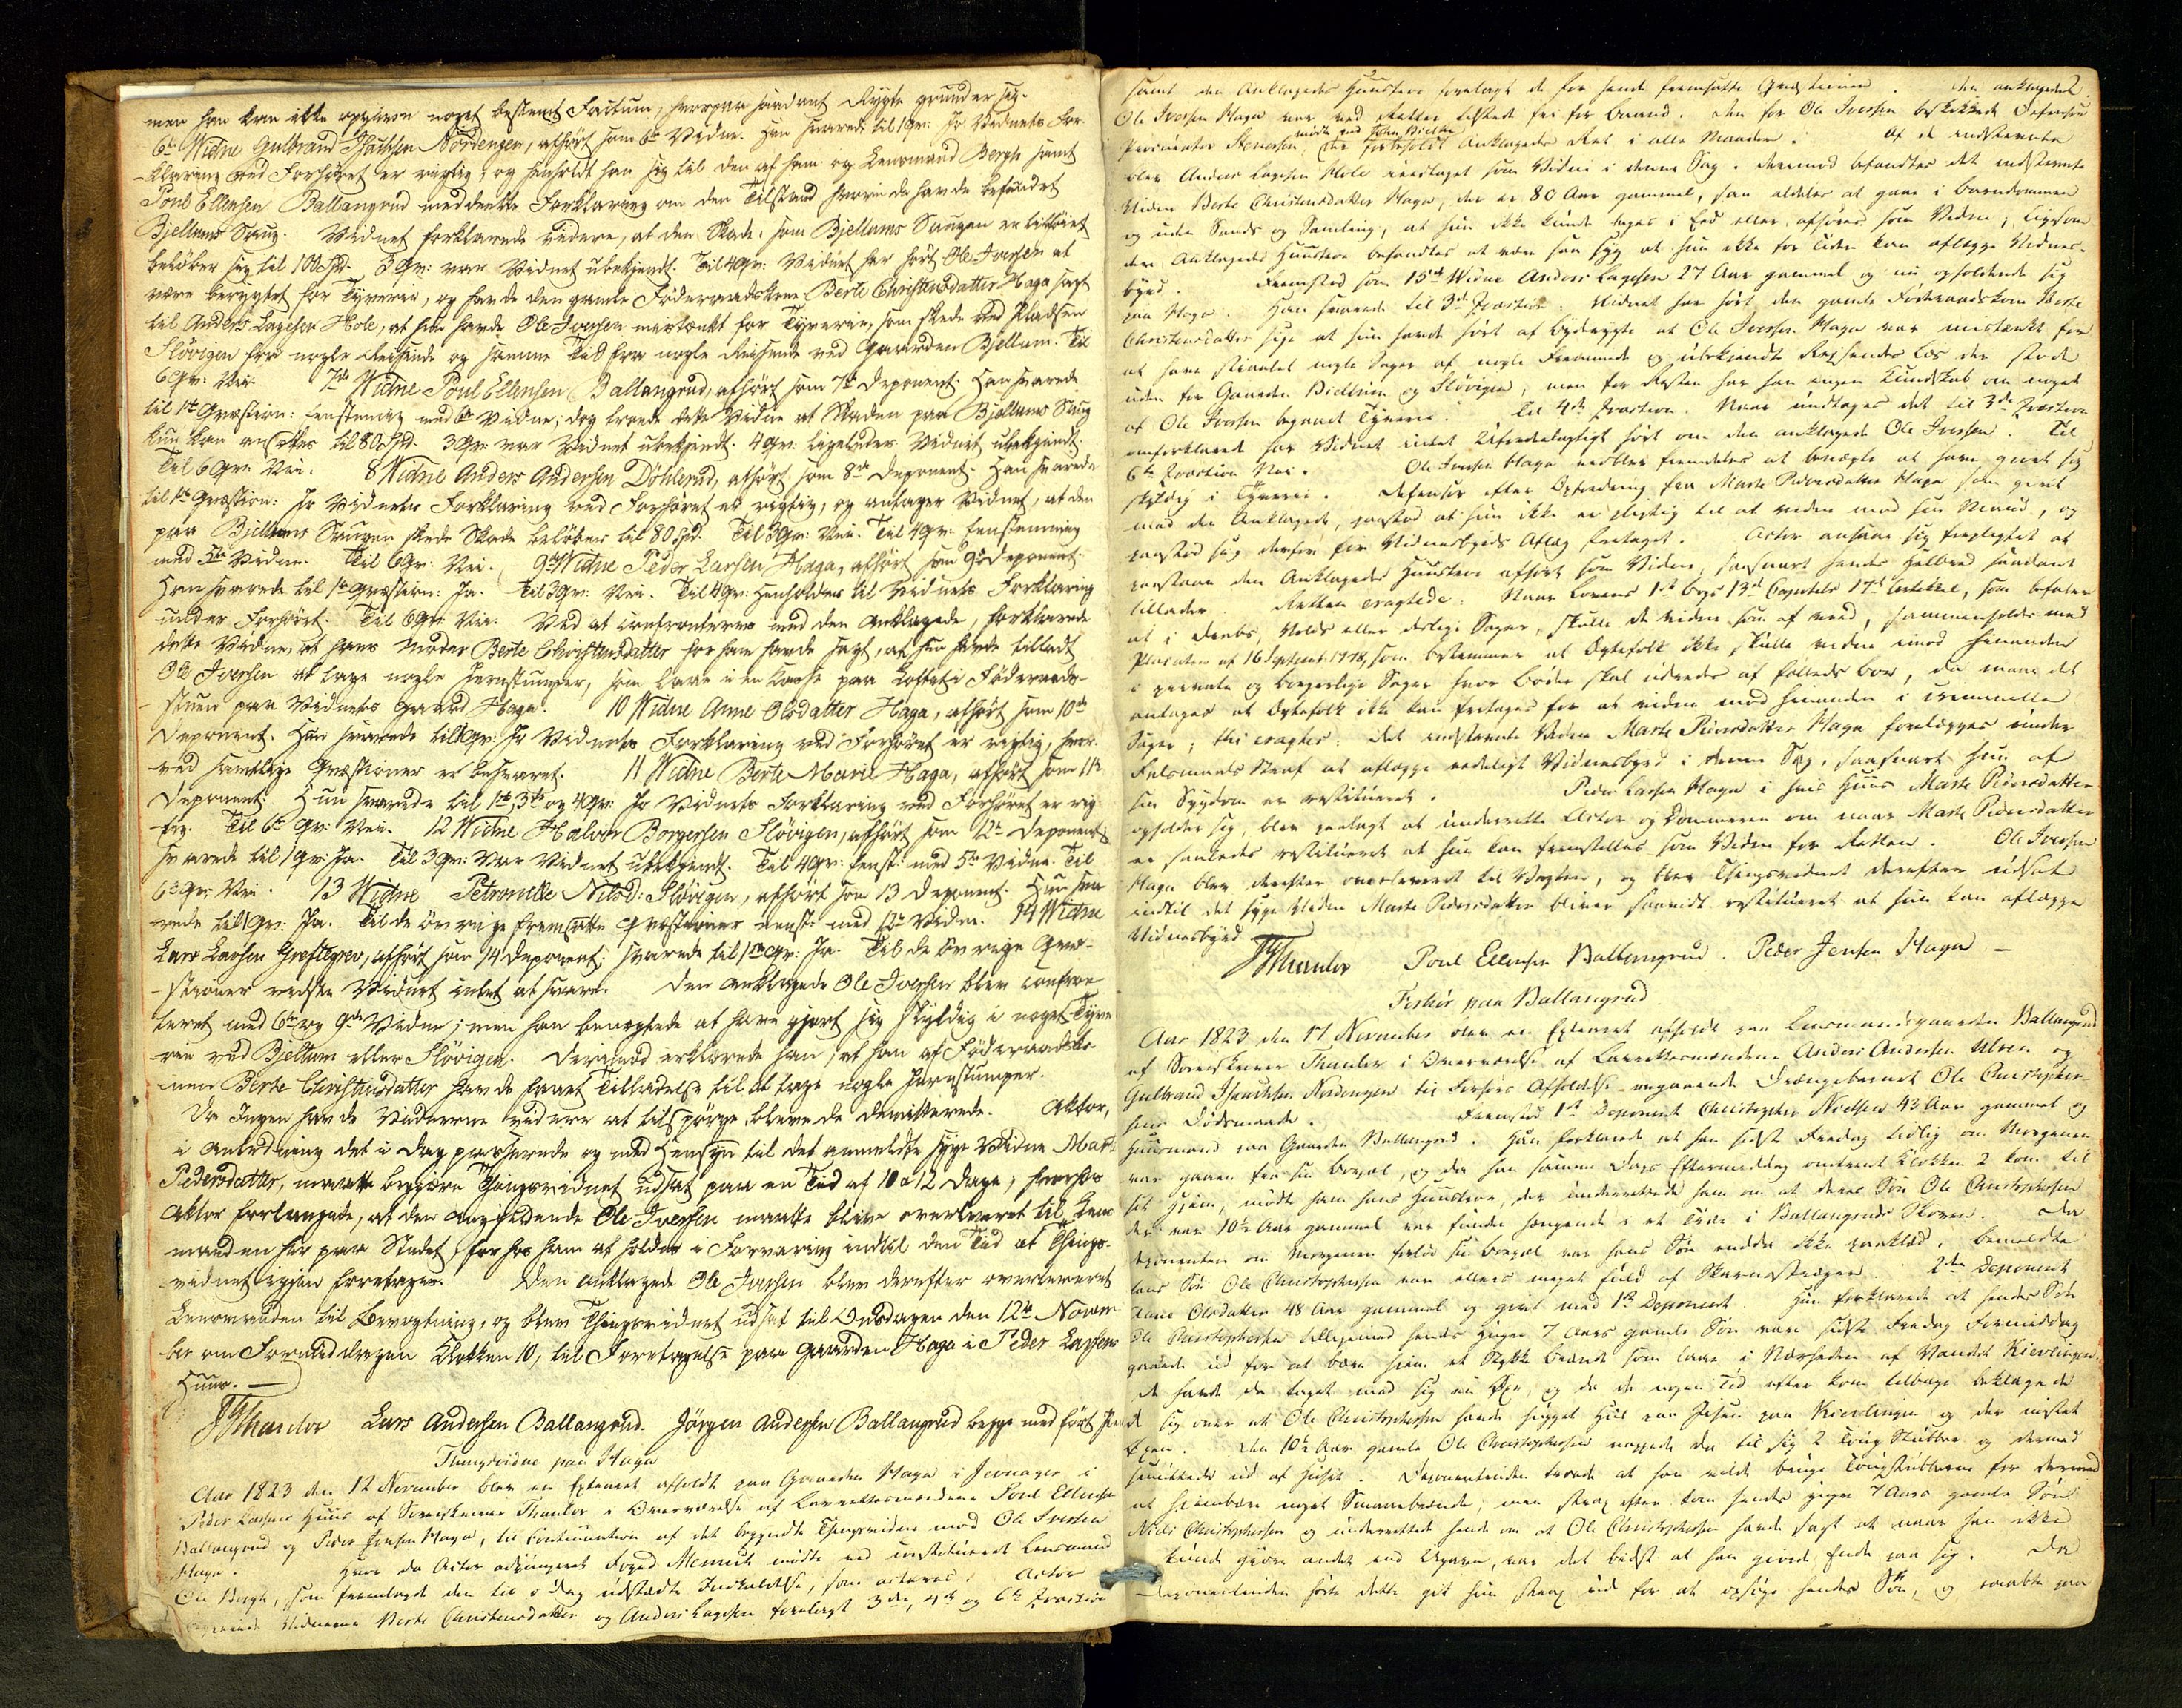 men han kan ikke opgive noget bestemt Factum, hvorpaa saadant Rygte grunder sig.
6te Widne Gulbrand Isachsen Nordengen, afhört som 6te Vidne. Han svarede til 1 Qv: Jo Vidnets For-
klaring ved Forhöret er rigtig, og henholdt han sig til den af ham og Lensmand Bergh samt
Poul Ellensen Ballangrud meddeelte Forklaring om den Tilstand hvori de havde befundet
Bjellums Saug. Vidnet forklarede videre, at den Skade, som Bjellums Saugen er tilföiet
belöber sig til 100 Spd. 3 Qv: var Vidnet ubekjendt. Til 4 Qv: Vidnet har hört Ole Iversen at
være berygtet for Tyverie, og havde den gamle Föderaadskone Berte Christensdatter Haga sagt
til Anders Lagesen Hole, at hun havde Ole Iversen mistænkt for Tyverie, som skede ved Pladsen
Slövigen fra nogle Reisende og samme Tid fra nogle Reisende ved Gaarden Bjellum. Til
6 Qv: Nei. 7de Widne Poul Ellensen Ballangrud, afhört som 7de Deponent. Han svarede
til 1ste Qvæstion: eenstemmig med 6te Vidne; dog troede dette Vidne at Skaden paa Bjellums Saug
kun kan ansættes til 80 Spd. 3 Qv: var Vidnet ubekjendt. 4 Qv: ligeledes Vidnet ubekjendt.
Til 6 Qv: Nei. 8 Widne Anders Andersen Döhlerud, afhört som 8de Deponent. Han svarede
til 1ste Qvæstion: Jo Vidnets Forklaring ved Forhöret er rigtig, og antager Vidnet, at den
paa Bjellums Saugen skede Skade belöber til 80 Spd. Til 3 Qv: Nei. Til 4 Qv: eenstemmig
med 5te Vidne. Til 6 Qv: Nei. 9de Widne Peder Larsen Haga, afhört som 9de Deponent.
Han svarede til 1ste Qvæstion: Ja. Til 3 Qv: Nei. Til 4 Qv: henholdes til Vidnets Forklaring
under Forhöret. Til 6 Qv: Nei. Ved at confronteres med den Anklagede, forklarede
dette Vidne, at hans Moder Berte Christensdatter for ham havde sagt, at hun havde tilladt
Ole Iversen at tage nogle Jernstumper, som laae i en Kasse paa Loftet i Föderaads-
stuen paa Vidnets Gaard Haga. 10 Widne Anne Olsdatter Haga, afhört som 10de
Deponent. Hun svarede til 1 Qv: Jo Vidnets Forklaring ved Forhöret er rigtig, hvor-
ved samtlige Qvæstioner er besvaret. 11 Widne Berte Marie Haga, afhört som 11te
Deponent. Hun svarede til 1ste, 3de og 4 Qv: Jo Vidnets Forklaring ved Forhöret er rig-
tig. Til 6te Qv: Nei. 12 Widne Halvor Borgersen Slövigen, afhört som 12te Deponent,
svarede til 1 Qv: Ja. Til 3 Qv: var Vidnet ubekjendt. Til 4 Qv: eenst: med 5te Vidne. Til
6te Qv: Nei. 13 Widne Petronelle Nilsd: Slövigen, afhört som 13 Deponent. Hun sva-
rede til 1 Qv: Ja. Til de övrige fremsatte Qvæstioner eenst: med 12te Vidne. 14 Widne
Lars Larsen Greftegrev, afhört som 14 Deponent; svarede til 1ste Qv: Ja. Til de övrige Qvæ-
stioner vidste Vidnet intet at svare. Den anklagede Ole Iversen blev confron-
teret med 6te og 9de Vidne; men han benegtede at have gjort sig skyldig i noget Tyve-
rie ved Bjellum eller Slövigen. Derimod erklærede han, at han af Föderaadsko-
nen Berte Christensdatter havde faaet Tilladelse til at tage nogle Jernstumper.
Da Ingen havde Vidnerne videre at tilspörge, bleve de demitterede. Aktor,
i Anledning det i Dag passerede og med Hensyn til det anmeldte syge Vidne Marte
Pedersdatter, maatte begjære Thingsvidnet udsat paa en Tid af 10 a 12 Dage, hvorhos
Aktor forlangede, at den angjeldende Ole Iversen maatte blive overleveret til Lens-
manden her paa Stedet, for hos ham at holdes i Forvaring indtil den Tid at Things-
vidnet igjen foretages. Den anklagede Ole Iversen blev derefter overleveret
Lensmanden til Bevogtning, og blev Thingsvidnet udsat til Onsdagen den 12te Novem-
ber om Formiddagen Klokken 10, til Foretagelse paa Gaarden Haga i Peder Larsens
Huus. —
Thaulov Lars Andersen Ballangrud. Jörgen Andersen Ballangrud begge med fört Pen
Thingsvidne paa Haga
Aar 1823 den 12 November blev en Extraret afholdt paa Gaarden Haga i Jevnager i
Peder Larsens Huus af Sorenskriver Thaulov i Overværelse af Laurettesmændene Poul Ellensen
Ballangrud og Peder Jensen Haga, til Continuation af det begyndte Thingsvidne mod Ole Iversen
Haga. Hvor da Actor adjungeret Foged Mennich mödte ved constitueret Lensmand
Ole Bergh, som fremlagde den til i Dag udstædte Indkaldelse, som acteres. Actor
Vidnerne Berte Christensdatter og Anders Lagesen forelagt 3die, 4de og 6te Qvæstion
samt den Anklagedes Huustroe forelagt de for hende fremsatte Qvæstioner. Den anklagede
Ole Iversen Haga var ved Retten tilstæde fri for Baand. Den for Ole Iversen beskikkede Defensor
mödt ved John Bielke
Procurator Stenersen, der forbeholdt Anklagede Ret i alle Maader. Af de indstævnte
blev Anders Lagesen Hole iversslaget som Vidne i denne Sag. Derimod befandtes det indstævnte
Vidne Berte Christensdatter Haga, der er 80 Aar gammel, saa aldeles at gaae i Barndommen
og uden Sands og Samling, at hun ikke kunde tages i Eed eller afhöres som Vidne; ligesom
den Anklagedes Huustroe befandtes at være saa syg at hun ikke for Tiden kan aflægge Vidnes-
byrd. Fremstod som 15de Widne Anders Lagesen 27 Aar gammel og nu opholdende sig
paa Haga. Han svarede til 3de Qvæstion: Vidnet har hört den gamle Föderaadskone Berte
Christensdatter sige at hun havde hört af Bygderygte at Ole Iversen Haga var mistænkt for
at have stiaalet nogle Sager af nogle Fremmede og ubekjendte Reisendes Læs der stode
uden for Gaarden Biellum og Slövigen, men for Resten har han ingen Kundskab om noget
af Ole Iversen begaaet Tyverie. Til 4de Qvæstion: Naar undtages det til 3de Qvæstion
omforklarede har Vidnet intet Ufordeelagtigt hört om den anklagede Ole Iversen. Til
6te Qvæstion Nei. Ole Iversen Haga vedblev fremdeles at benægte at have gjort sig
skyldig i Tyverie. Defensor efter Opfordring fra Marte Pedersdatter Haga som givt
med den Anklagede, paastod at hun ikke er pligtig til at vidne mod sin Mand, og
paastod sig derfor for Vidnesbyrds Aflæg fritaget. Actor ansaae sig forpligtet at
paastaae den Anklagedes Huustroe afhört som Vidne, saasnart hendes Helbred saadant
tillader. Retten eragtede: Naar Lovens 1ste Bogs 13de Capitels 17de Artikkel, som befaler
at i Drabs, Volds eller deslige Sager, skulle de vidne som af veed, sammenholdes med
Placaten af 16 Septembr 1778, som bestemmer at Ægtefolk ikke skulle vidne imod hinanden
i private og borgerlige Sager hvor Böder skal udredes af Fælleds Boe, da maae det
antages at Ægtefolk ikke kan fritages for at vidne mod hinanden i criminelle
Sager; thi eragtes: Det indstævnte Vidne Marte Pedersdatter Haga forelægges under
Falsmaals Straf at aflægge eedeligt Vidnesbyrd i denne Sag, saasnart hun af
sin Sygdom er restitueret. Peder Larsen Haga i hvis Huus Marte Pedersdatter
opholder sig, blev paalagt at underrette Actor og Dommeren om naar Marte Pedersdatter
er saaledes restitueret at hun kan fremstilles som Vidne for Retten. Ole Iversen
Haga blev derefter overleveret til Vagten, og blev Thingsvidnet derefter udsat
indtil det syge Vidne Marte Pedersdatter bliver saavidt restitueret at hun kan aflægge
Vidnesbyrd
Thaulov Poul Ellensen Ballangrud. Peder Jensen Haga —
Forhör paa Ballangrud
Aar 1823 den 17 November blev en Extraret afholdt paa Lensmandsgaarden Ballangrud
af Sorenskriver Thaulov i Overværelse af Laurettesmændene Anders Andersen Ulven og
Gulbrand Isachsen Nordengen til Forhörs Afholdelse angaaende Drængebarnet Ole Christopher-
sens Dödsmaade. Fremstod 1ste Deponent Christopher Nielsen 43 Aar gammel og
Huusmand paa Gaarden Ballangrud. Han forklarede at han sidste Fredag tidlig om Morgenen
var gaaen fra sin Bopæl, og da han samme Dags Eftermiddag omtrent Klokken 2 kom til
sit Hjem, mödte ham hans Huustroe, der underrettede ham om at deres Sön Ole Christophersen
der var 10½ Aar gammel var funden hængende i et Træe i Ballangruds Skoven. Da
Deponenten om Morgenen forlod sin Bopæl var hans Sön endda ikke paaklæd. Bemeldte
hans Sön Ole Christophersen var ellers meget fuld af Skarnsstræger. 2den Deponent
Anne Olsdatter 48 Aar gammel og givt med 1ste Deponent. Hun forklarede at hendes Sön
Ole Christophersen tilligemed hendes yngre 7 Aars gamle Sön vare sidste Fredag Formiddag
gaaede ud for at bære hiem et Stykke Brænde som laae i Nærheden af Vandet Kievlingen.
De havde da taget med sig en Öxe, og da de nogen Tid efter kom tilbage beklagede
de sig over at Ole Christophersen havde hugget Hul paa Isen paa Kievlingen og der mistet
Öxen. Den 10½ Aar gamle Ole Christophersen nappede da til sig 2 Toug Stubber og dermed
smuttede ud af Huset. Deponentinden troede at han vilde bruge Tougstubberne for dermed
at hiembære noget Smaaebrænde, men strax efter kom hendes yngre 7 Aars gamle Sön
Niels Christophersen og underrettede hende om at Ole Christophersen havde sagt at naar han ikke
kunde giöre andet end Ugavn, var det bedst at han giorde Ende paa sig. Da
Deponentinden hörte dette gik hun strax ud for at opsöge hendes Sön, og raabte paa